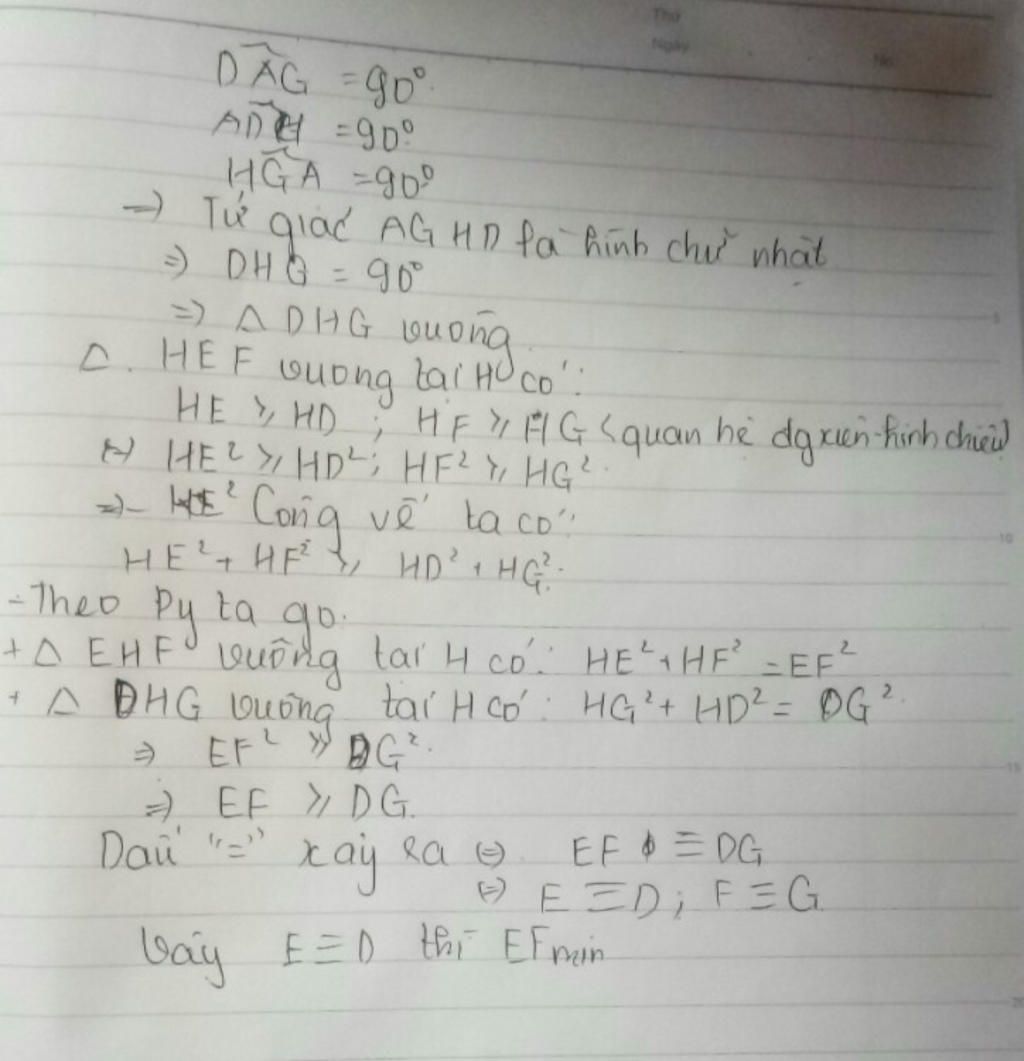 Thứ
Ngày
No.
DAG = 90°.
ADH = 90°.
HGA = 90°
→ Tứ giác AGHD là hình chữ nhật
⇒ DHG = 90°
⇒ Δ DHG vuông.
Δ. HEF vuong tại H có:
HE ≥ HD ; HF ≥ HG (quan hệ đg xiên-hình chiếu)
HE² ≥ HD²; HF² ≥ HG².
⇒ Cộng vế ta có:
HE² + HF² ≥ HD² + HG².
- Theo Py ta go.
+ Δ EHF vuông tại H có: HE² + HF² = EF²
+ Δ DHG vuông tại H có: HG² + HD² = DG².
⇒ EF² ≥ DG².
⇒ EF ≥ DG.
Dấu "=" xảy ra ⇔ EF ≡ DG
⇔ E ≡ D ; F ≡ G
Vậy E ≡ D thì EF min